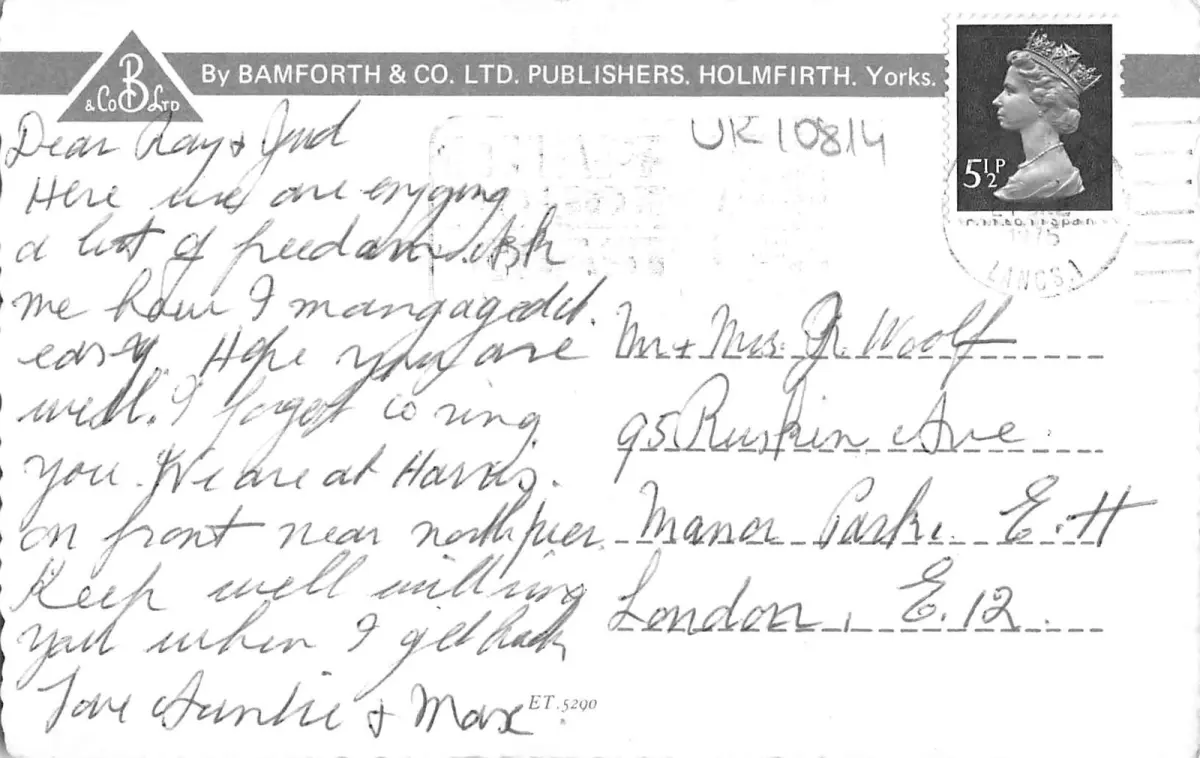 By BAMFORTH & CO. LTD. PUBLISHERS. HOLMFIRTH. Yorks.
B
& Co LTD
UK10814
5½P
1975
LANCS
Dear Ray & Jud
Here we are enyging
a lot of freedam. Ask
me how I mangaged it.
easy. Hope you are
well. I forgot to ring
you. We are at
on front near north pier.
Keep well will ring
you when I get back
Love Auntie & Max
ET.5290
Mr & Mrs. R. Woolf
95 Ruskin Ave.
Manor Park. E.H
London, E.12.